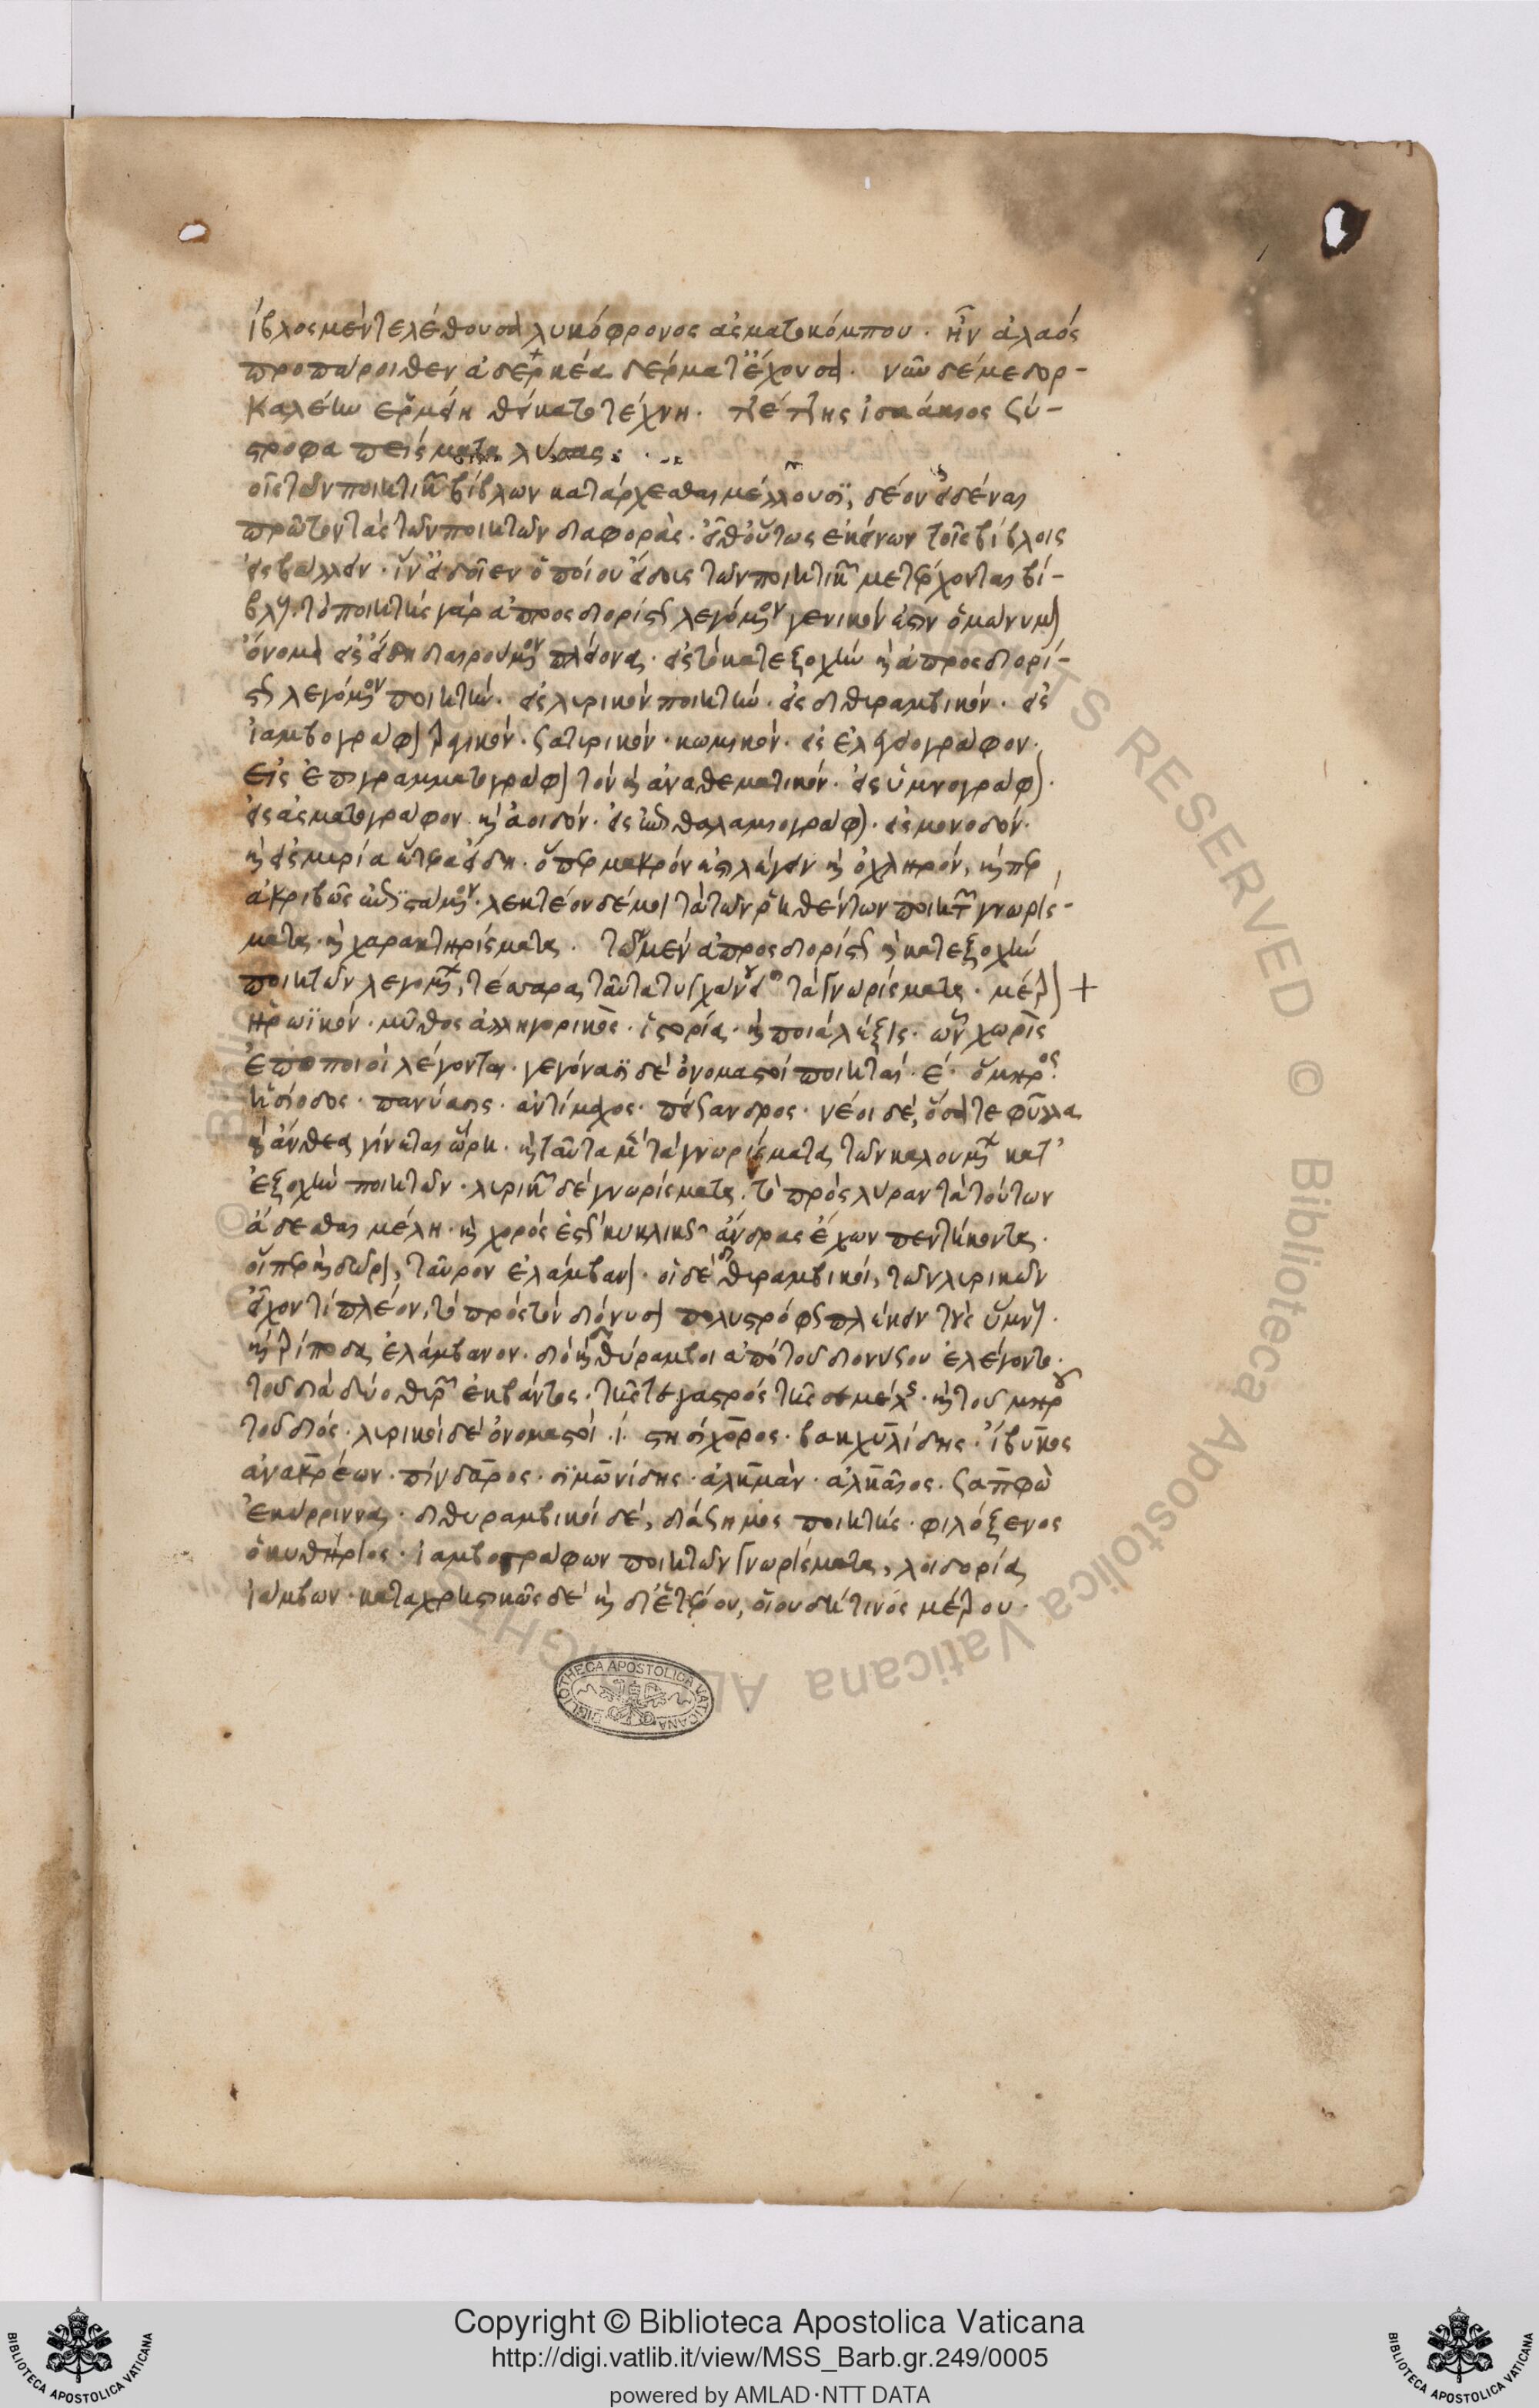 ίβλος μὲν τελέθουσα λυκόφρονος ἀσματοκόμπου. ἦν ἀλαὸς
προπάροιθεν ἀδερκέα δέρματ' ἔχουσα. νῦν δέ με δορ-
καλέην ἑρμείη θήκατο τέχνη. τζέτζης ἰσαάκιος ζύ-
στροφα πείσματα λύσας:
οἷς τῶν ποιητικῶν βίβλων κατάρχεσθαι μέλλουσι, δέον εἰδέναι
πρῶτον τὰς τῶν ποιητῶν διαφοράς. εἶθ' οὕτως ἐκείνων τοῖς βίβλοις
εἰσβάλλειν. ἵν' εἰδοῖεν ὁποίου εἴδους τῶν ποιητικῶν μετέρχονται βί-
βλων. τὸ ποιητὴς γὰρ ἀπροσδιορίστως λεγόμενον γενικόν ἐστιν ὁμώνυμον
ὄνομα εἰς εἴδη διαιρούμενον πλείονα. εἰς τὸ κατεξοχὴν καὶ ἀπροσδιορί-
στως λεγόμενον ποιητήν. εἰς λυρικὸν ποιητήν. εἰς διθυραμβικόν. εἰς
ἰαμβογράφον τραγικόν. σατυρικόν. κωμικόν. εἰς ἐλεγειογράφον.
εἰς ἐπιγραμματογράφον τὸν καὶ ἀναθεματικόν. εἰς ὑμνογράφον.
εἰς ἀσματογράφον καὶ ἀοιδόν. εἰς ἐπιθαλαμιογράφον. εἰς μονῳδόν.
καὶ εἰς μυρία ἕτερα εἴδη. ὅπερ μακρόν ἐστι λέγειν καὶ ὀχληρόν, καίπερ
ἀκριβῶς ἐπιστάμενον. λεκτέον δέ μοι τὰ τῶν ῥηθέντων ποιητῶν γνωρίσ-
ματα. καὶ χαρακτηρίσματα. τῶν μὲν ἀπροσδιορίστως καὶ κατεξοχὴν
ποιητῶν λεγομένων, τέσσαρα ταῦτα τυγχάνουσι τὰ γνωρίσματα. μέτρον +
ἡρωϊκόν. μῦθος ἀλληγορικός. ἱστορία. καὶ ποιὰ λέξις. ὧν χωρὶς
ἐποποιοὶ λέγονται. γεγόνασι δὲ ὀνομαστοὶ ποιηταὶ. ε΄. ὅμηρος
ἡσίοδος. πανύασις. ἀντίμαχος. πείσανδρος. νέοι δέ, ὅσα τε φύλλα
καὶ ἄνθεα γίνεται ὥρη. καὶ ταῦτα μὲν τὰ γνωρίσματα τῶν καλουμένων κατ'
ἐξοχὴν ποιητῶν. λυρικῶν δὲ γνωρίσματα. τὸ πρὸς λύραν τὰ τούτων
ᾄδεσθαι μέλη. καὶ χορὸς ἑστὼς κυκλικῶς ἄνδρας ἔχων πεντήκοντα.
οἵπερ καὶ δῶρον, ταῦρον ἐλάμβανον. οἱ δὲ διθυραμβικοί, τῶν λυρικῶν
εἶχόν τι πλέον, τὸ πρὸς τὸν διόνυσον πολυστρόφους πλέκειν τοὺς ὕμνους.
καὶ τρίποδα ἐλάμβανον. διὸ καὶ διθύραμβοι ἀπὸ τοῦ διονύσου ἐλέγοντο.
τοῦ διὰ δύο θυρῶν ἐκβάντος. τῆς τε γαστρὸς τῆς σεμέλης. καὶ τοῦ μηροῦ
τοῦ διός. λυρικοὶ δὲ ὀνομαστοὶ. ι΄. στησίχορος. βακχυλίδης. ἴβυκος
ἀνακρέων. πίνδαρος. σιμωνίδης. ἀλκμάν. ἀλκαῖος. σαπφὼ
ἐκόριννα. διθυραμβικοὶ δέ, διάσημος ποιητής. φιλόξενος
ὁ κυθήριος. ἰαμβογράφων ποιητῶν γνωρίσματα, λοιδορία
ἰάμβων. καταχρηστικῶς δὲ καὶ δι' ἑτέρου, οἱουδήτινος μέτρου.
BIBLIOTHECA APOSTOLICA VATICANA
© Biblioteca Apostolica Vaticana ALL RIGHTS RESERVED © Biblioteca Apostolica Vaticana
BIBLIOTECA APOSTOLICA VATICANA
Copyright © Biblioteca Apostolica Vaticana
http://digi.vatlib.it/view/MSS_Barb.gr.249/0005
powered by AMLAD·NTT DATA
BIBLIOTECA APOSTOLICA VATICANA